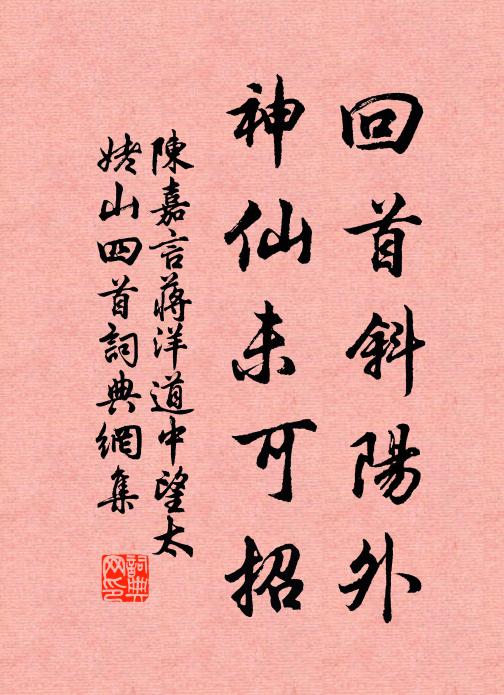 回首斜陽外
神仙未可招
陳嘉言蔣洋道中望太
姥山四首詞典網集
詞典
网印